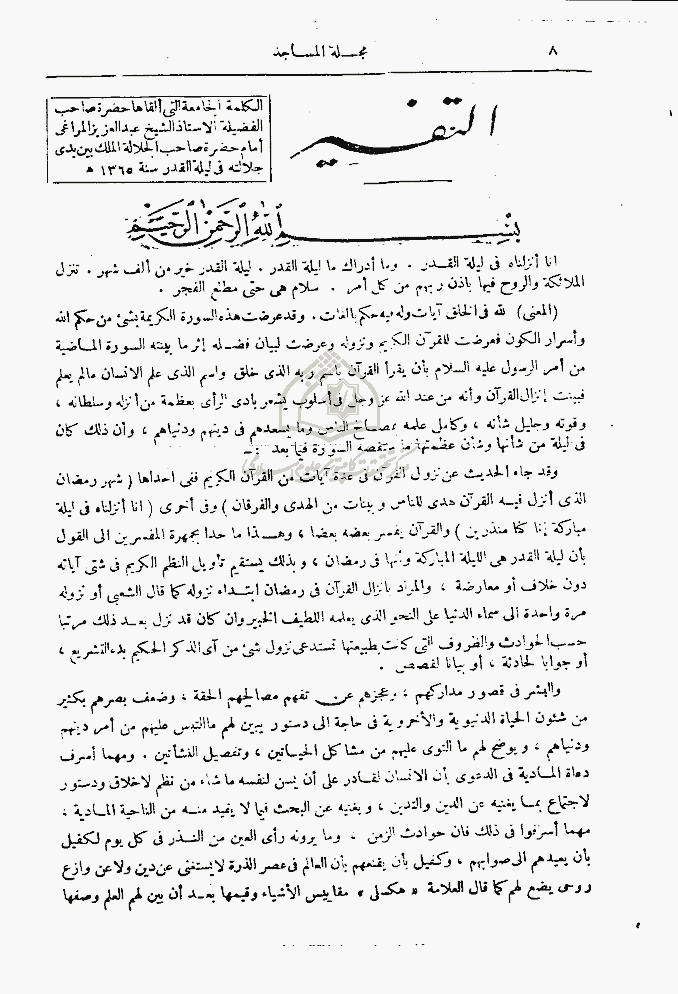 ٨
مجلة المساجد
التفسير
الكلمة الجامعة التى ألقاها حضرة صاحب
الفضيلة الاستاذ الشيخ عبد العزيز المراغى
أمام حضرة صاحب الجلالة الملك بين يدى
جلالته فى ليلة القدر سنة ١٣٦٥ ه
بسم الله الرحمن الرحيم
انا أنزلناه فى ليلة القدر . وما أدراك ما ليلة القدر . ليلة القدر خير من ألف شهر . تنزل
الملائكة والروح فيها باذن ربهم من كل أمر . سلام هى حتى مطلع الفجر .
(المعنى) لله فى الخلق آيات وله فيه حكم بالغات . وقد عرضت هذه السورة الكريمة بشئ من حكم الله
وأسرار الكون فعرضت للقرآن الكريم ونزوله وعرضت لبيان فضله إثر ما بينته السورة الماضية
من أمر الرسول عليه السلام بأن يقرأ القرآن باسم ربه الذى خلق واسم الذى علم الانسان مالم يعلم
فبينت إنزال القرآن وأنه من عند الله عز وجل فى أسلوب يشعر بادى الرأى بعظمة من أنزله وسلطانه ،
وقوته وجليل شأنه ، وكامل علمه بمصالح الناس وما يسعدهم فى دينهم ودنياهم ، وأن ذلك كان
فى ليلة من شأنها وشأن عظمتها ما ستقصه السورة فيما بعد :ـ
وقد جاء الحديث عن نزول القرآن فى عدة آيات من القرآن الكريم ففى احداها ( شهر رمضان
الذى أنزل فيه القرآن هدى للناس وبينات من الهدى والفرقان ) وفى أخرى ( انا أنزلناه فى ليلة
مباركة إنا كنا منذرين ) والقرآن يفسر بعضه بعضا ، وهذا ما حدا بجمهرة المفسرين الى القول
بأن ليلة القدر هى الليلة المباركة وأنها فى رمضان ، وبذلك يستقيم تأويل النظم الكريم فى شتى آياته
دون خلاف أو معارضة ، والمراد بانزال القرآن فى رمضان ابتداء نزوله كما قال الشعبى أو نزوله
مرة واحدة الى سماء الدنيا على النحو الذى يعلمه اللطيف الخبير وان كان قد نزل بعد ذلك مرتبا
حسب الحوادث والظروف التى كانت بطبيعتها تستدعى نزول شئ من آى الذكر الحكيم بدء التشريع ،
أو جوابا لحادثة ، أو بيانا لقصص .
والبشر فى قصور مداركهم ، وعجزهم عن تفهم مصالحهم الحقة ، وضعف بصرهم بكثير
من شئون الحياة الدنيوية والأخروية فى حاجة الى دستور يبين لهم ما التبس عليهم من أمر دينهم
ودنياهم ، ويوضح لهم ما التوى عليهم من مشاكل الحياتين ، وتفصيل النشأتين . ومهما أسرف
دعاة المادية فى الدعوى بأن الانسان لقادر على أن يسن لنفسه ما شاء من نظم لاخلاق ودستور
لاجتماع بما يغنيه عن الدين والتدين ، ويغنيه عن البحث فيما لا يفيد منه من الناحية المادية ،
مهما أسرفوا فى ذلك فان حوادث الزمن ، وما يرونه رأى العين من النذر فى كل يوم لكفيل
بأن يعيدهم الى صوابهم ، وكفيل بأن يقنعهم بأن العالم فى عصر الذرة لا يستغنى عن دين ولا عن وازع
روحى يضع لهم كما قال العلامة « هكسلى » مقاييس الأشياء وقيمها بعد أن بين لهم العلم وصفها